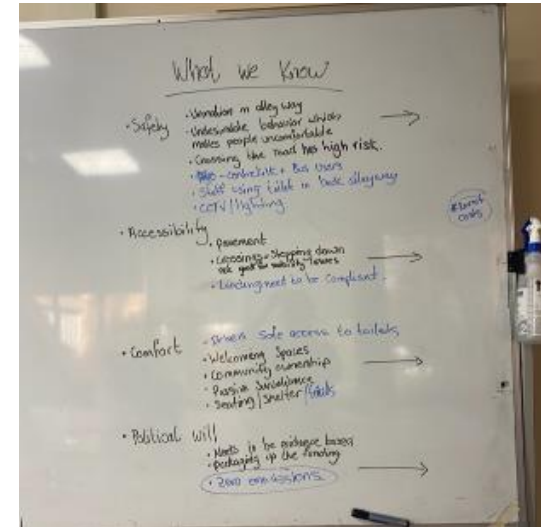 What we know
• Safety
• Urination in alley way
• Undesirable behavior which
makes people uncomfortable
• Crossing the road has high risk.
+ Bus users
• Staff using toilet in back alleyway
• CCTV/lighting
costs
• Accessibility
• pavement
• Crossings - stepping down
not good for mobility issues
• need to be compliant.
• Comfort
• Drivers safe access to toilets
• Welcoming Spaces
• Community ownership
• Passive Surveillance
• Seating/shelter/toilets
• Political will
• Needs to be evidence based
• packaging up the funding
• zero emissions